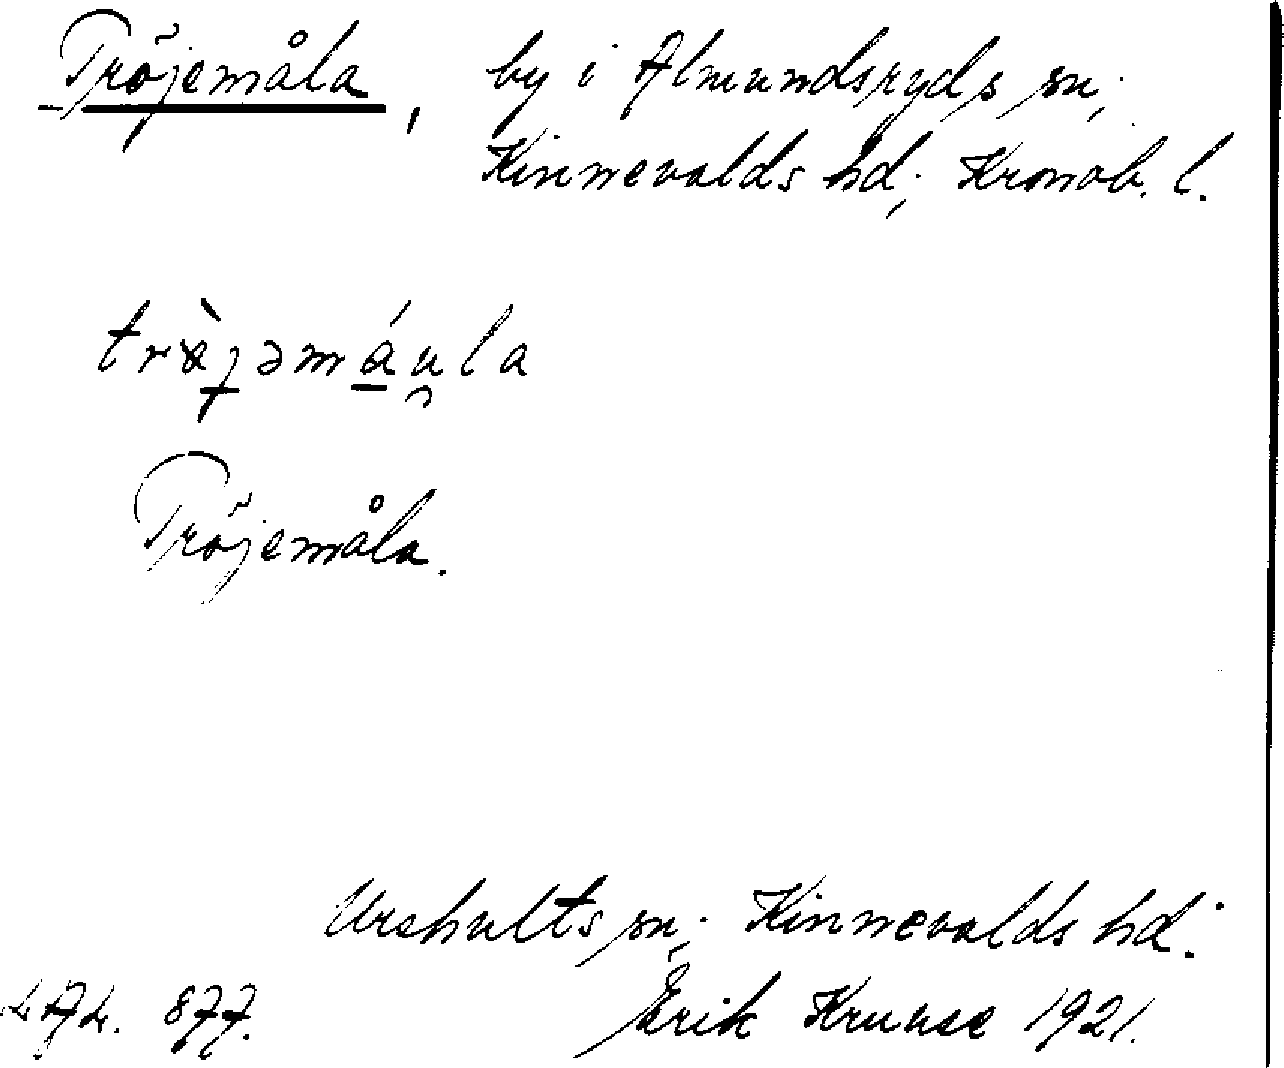 Tröjemåla, by i Almundsryds sn;
Kinnevalds hd; Kronob. l.
träjəmáu̯la
Tröjemåla.
Urshults sn; Kinnevalds hd:
LAL. 877. Erik Kruuse 1921.